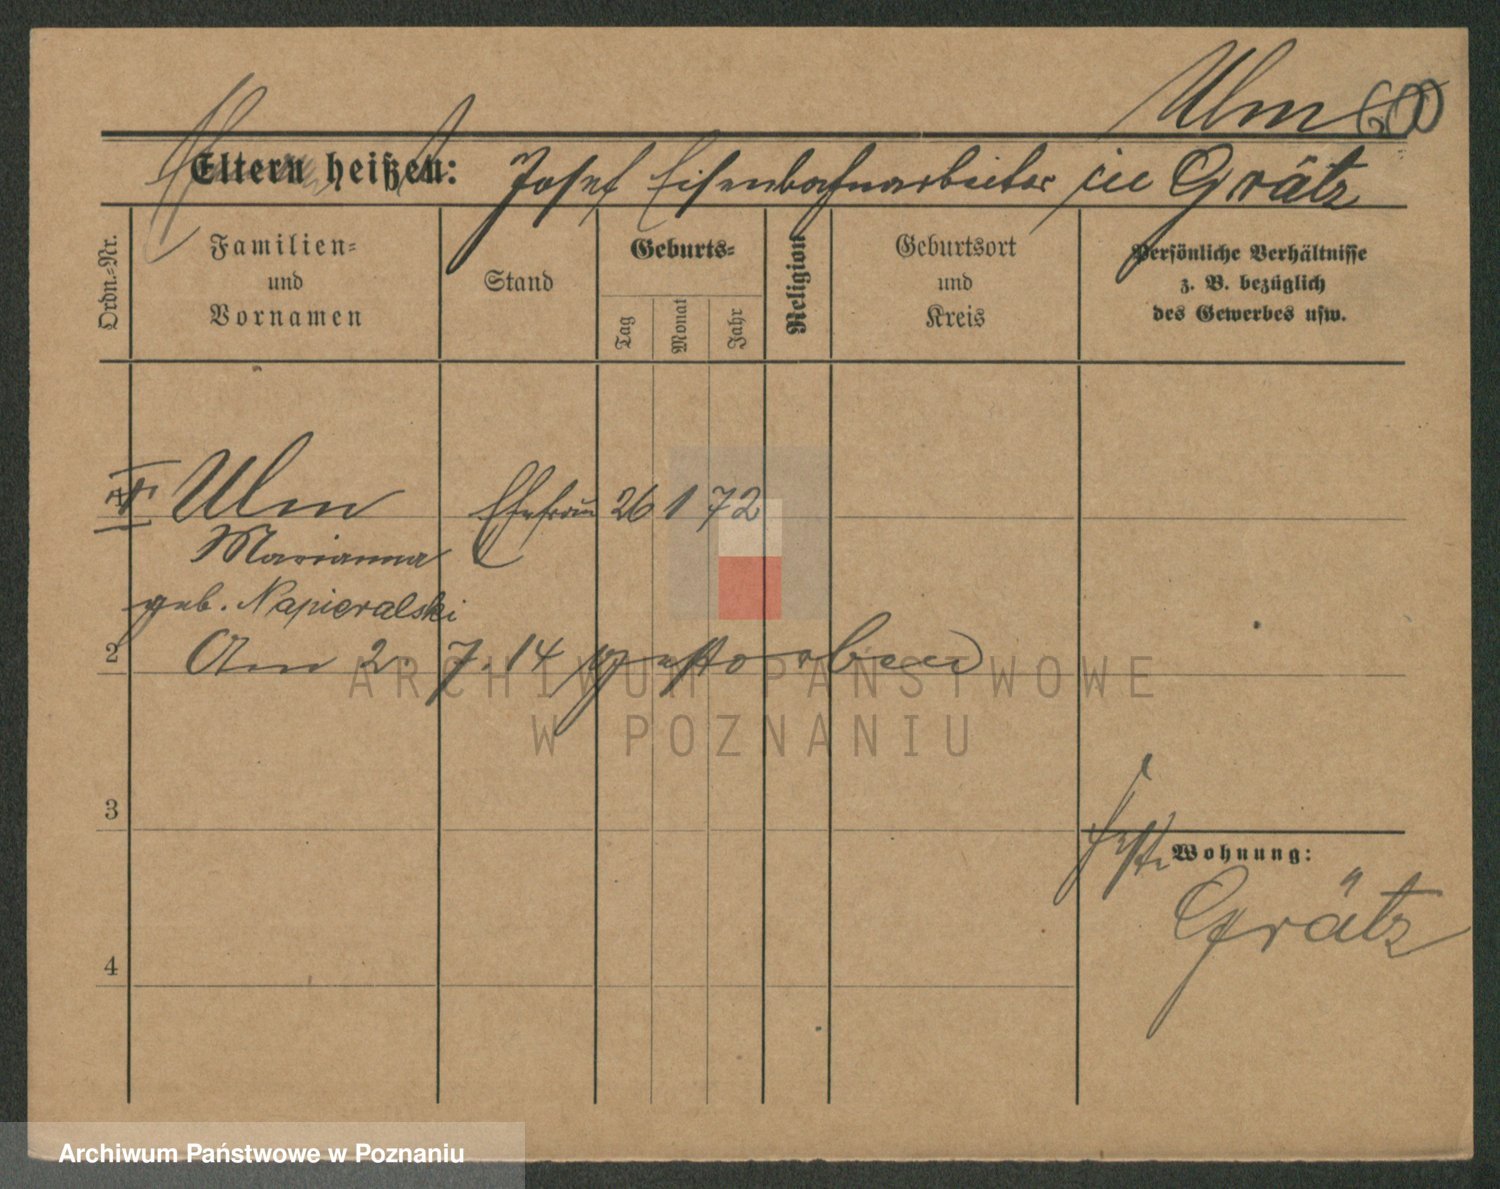 Ulm
Eltern heißen: Josef Eisenbahnarbeiter in Grätz
Ordn.-Nr.
Familien-
und
Vornamen
Stand
Geburts-
Tag
Monat
Jahr
Religion
Geburtsort
und
Kreis
Persönliche Verhältnisse
z. B. bezüglich
des Gewerbes usw.
Ulm Ehefrau 26 1 72
Marianna
geb. Napieralski
2 Am 2. 7. 14 gestorben
ARCHIWUM PAŃSTWOWE
W POZNANIU
3
Wohnung:
Grätz
4
Archiwum Państwowe w Poznaniu